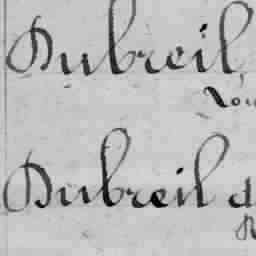 Dubreil,
Dubreil d